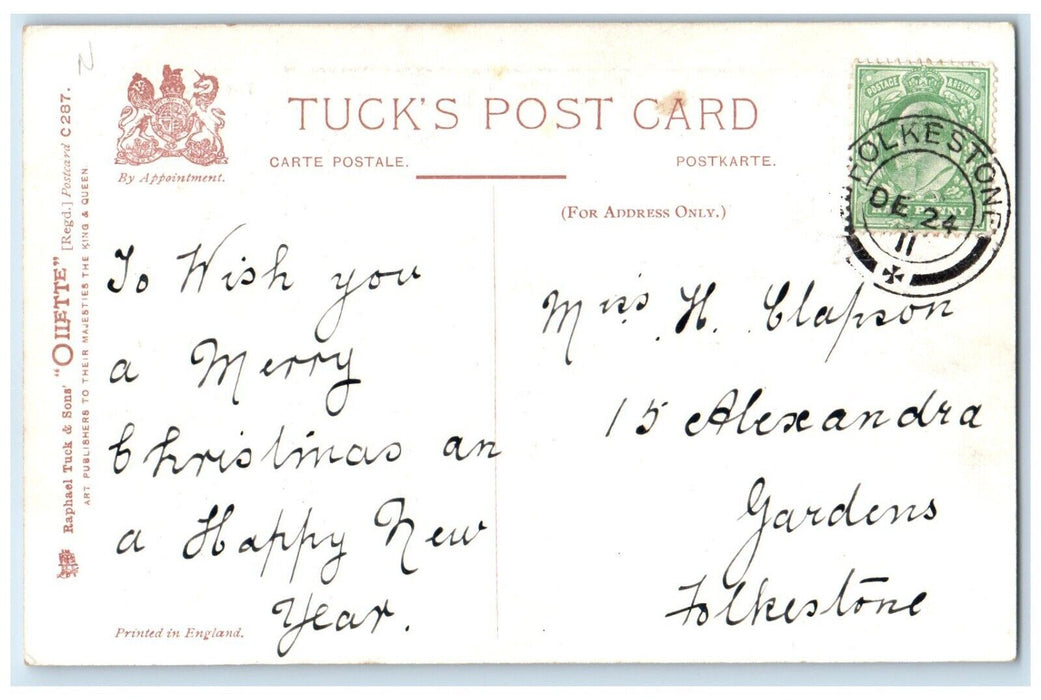 TUCK'S POST CARD
CARTE POSTALE.
POSTKARTE.
By Appointment.
(FOR ADDRESS ONLY.)
Raphael Tuck & Sons' "OILETTE" [Regd.] Postcard C 287.
ART PUBLISHERS TO THEIR MAJESTIES THE KING & QUEEN.
POSTAGE & REVENUE
HALF PENNY
FOLKESTONE
DE 24
11
To Wish you
a Merry
Christmas an
a Happy New
Year.
Miss. H. Clapson
15 Alexandra
Gardens
Folkestone
Printed in England.
N